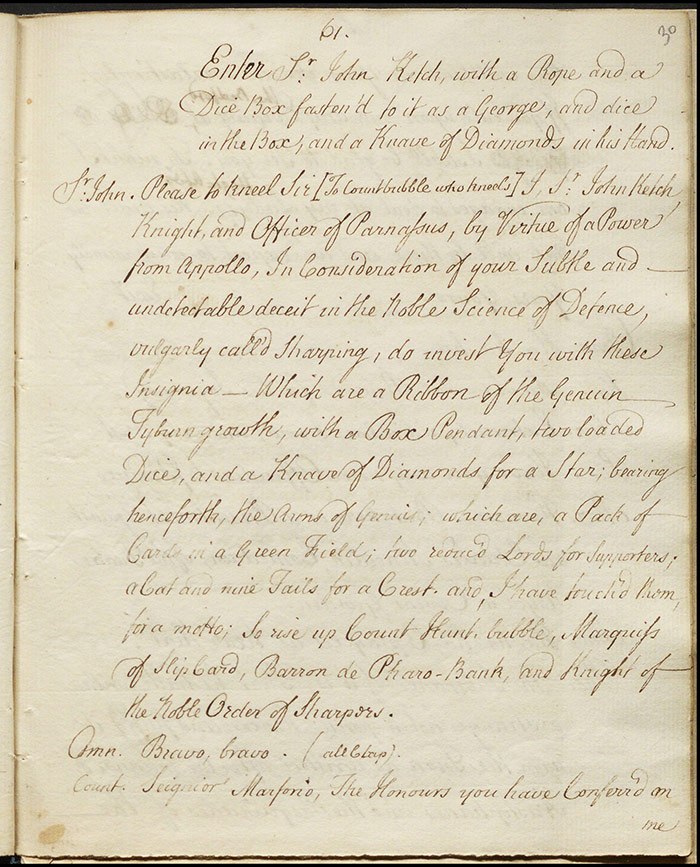 61.
30
Enter Sr. John Ketch, with a Rope and a
Dice Box fasten'd to it as a George, and dice
in the Box, and a Knave of Diamonds in his Hand.
Sr. John. Please to kneel Sir [To Count bubble who kneels] I, Sr. John Ketch
Knight, and Officer of Parnassus, by Virtue of a Power
from Appollo, In Consideration of your Subtle and
undetectable deceit in the Noble Science of Defence,
vulgarly call'd Sharping, do invest You with these
Insignia — Which are a Ribbon of the Genuin
Tyburn growth, with a Box Pendant, two loaded
Dice, and a Knave of Diamonds for a Star; bearing
henceforth, the Arms of Genius; which are, a Pack of
Cards in a Green Field; two reduc'd Lords for Supporters;
a Cat and nine Tails for a Crest. and, I have touch'd them,
for a motto; So rise up Count Hunt. bubble, Marquiss
of Slip Card, Barron de Pharo-Bank, and Knight of
the Noble Order of Sharpers.
Omn. Bravo, bravo. (all Clap).
Count. Seignior Marforio, The Honours you have Conferr'd on
me